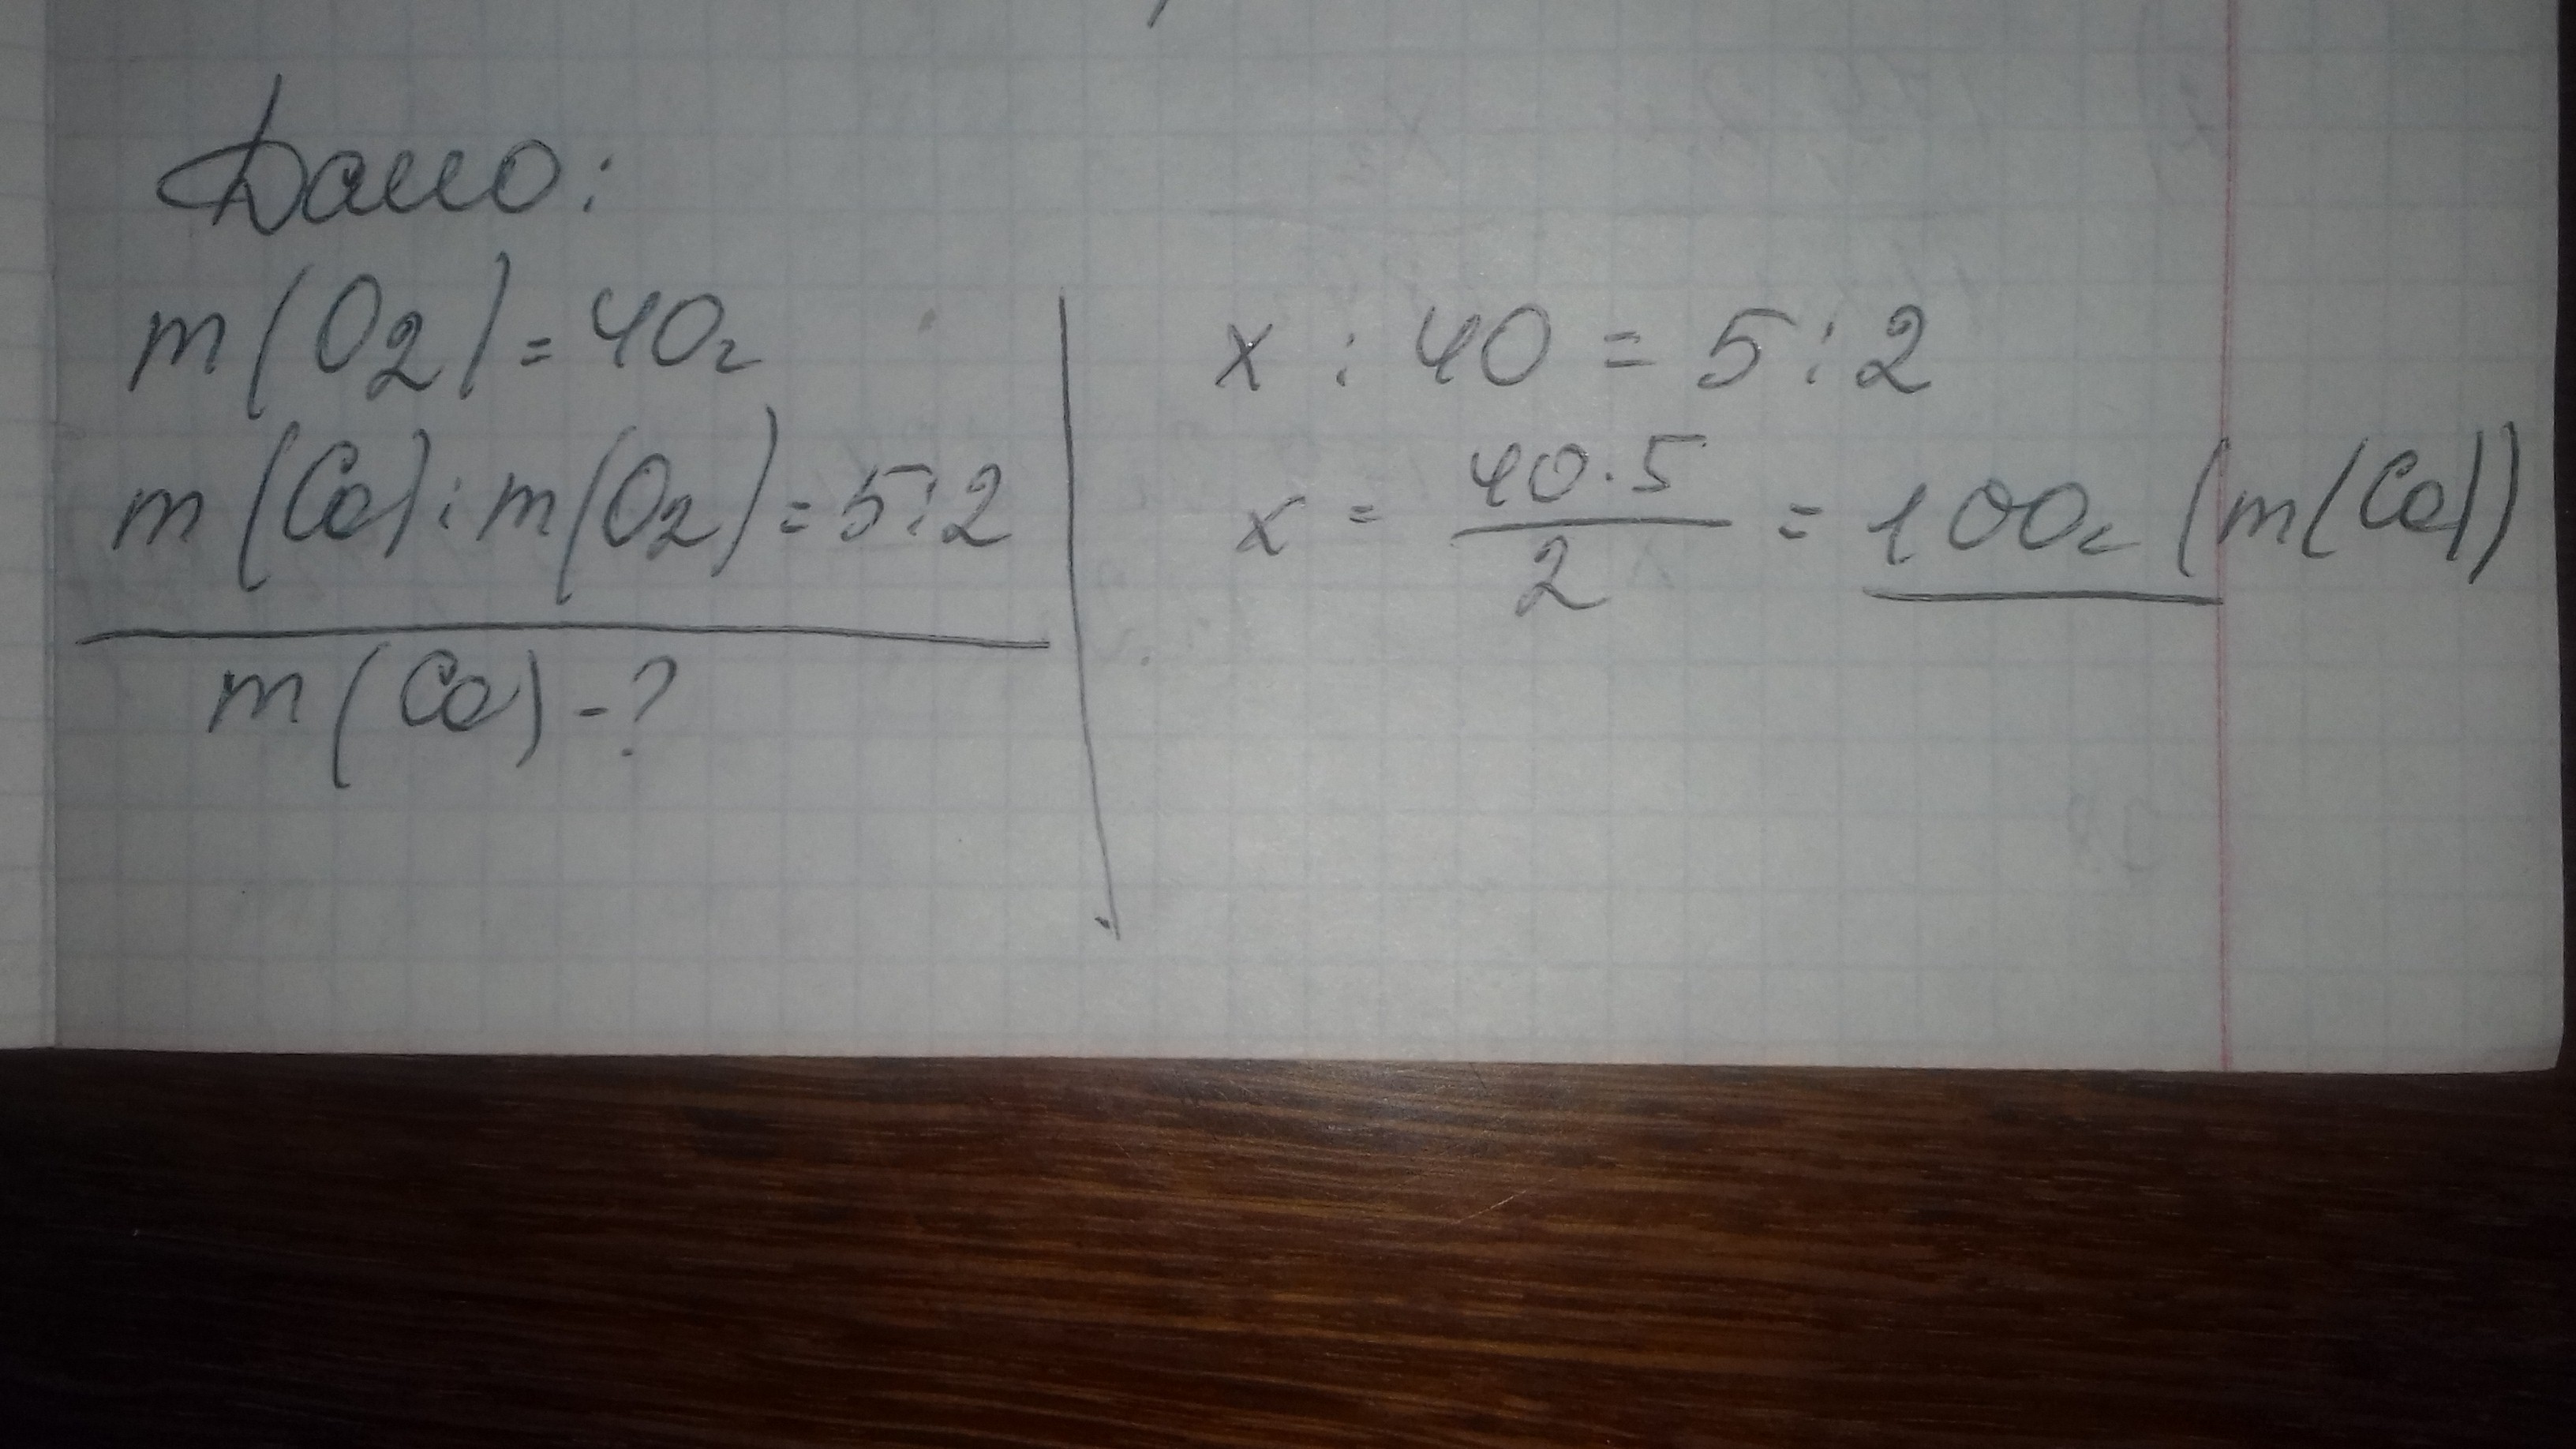 Дано:
m(O2)=40г
m(Ca):m(O2)=5:2
m(Ca)-?
x : 40 = 5:2
x = 40·5/2 = 100г (m(Ca))